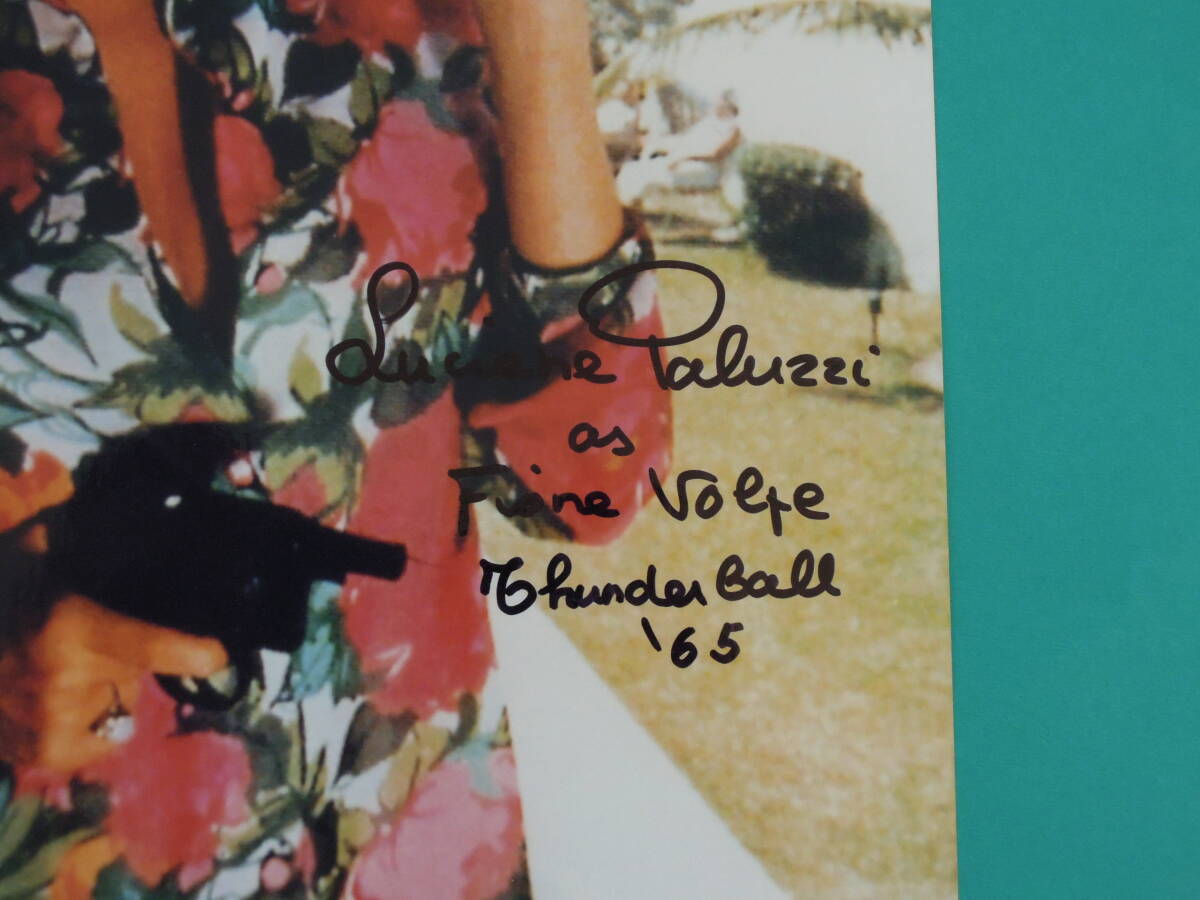 Luciana Paluzzi
as
Fiona Volpe
Thunderball
'65